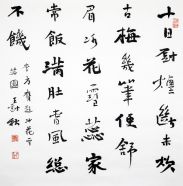 十日廚煙斷未炊
古梅幾筆便舒
眉冰花雪蕊家
常飯滿肚春風總
不饑
李方膺題梅花